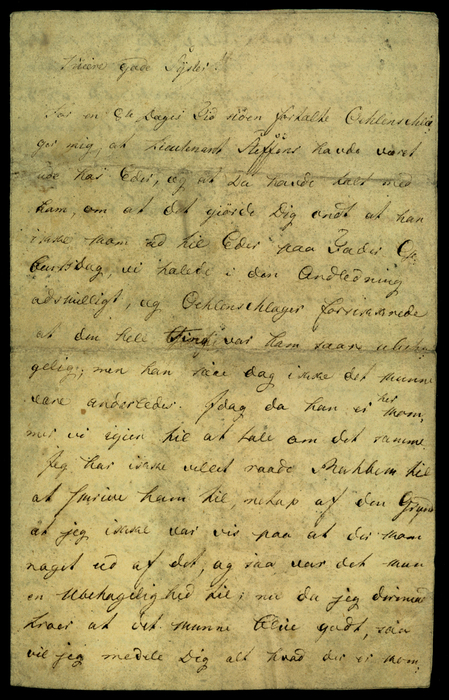 Min gode Søster!
For en 14 Dages Tid siden fortalte Oehlenschlæ
ger mig, at Lieutenant Steffens havde været
ude hos Eder, og at Du havde talt med
ham, om at det giorde Dig ondt at han
ikke kom ud til Eder paa Fader
burtsdag, vi talede i den Andledning
adskilligt, og Oehlenschlæger forsikkrede
at den hele Ting var ham saare ubeha
gelig; men han saae dog ikke det kunne
være anderledes. Idag da han er her kom,
mer vi igien til at tale om det samme
Jeg har ikke villet raade Rahbek til
at skrive ham til, netop af den Grund
at jeg ikke var vis paa at der kom
noget ud af det, og saa var det kun
en Ubehagelighed til; nu da jeg derimod
troer at det kunne blive godt, saa
vil jeg meddele Dig alt hvad der er kom,